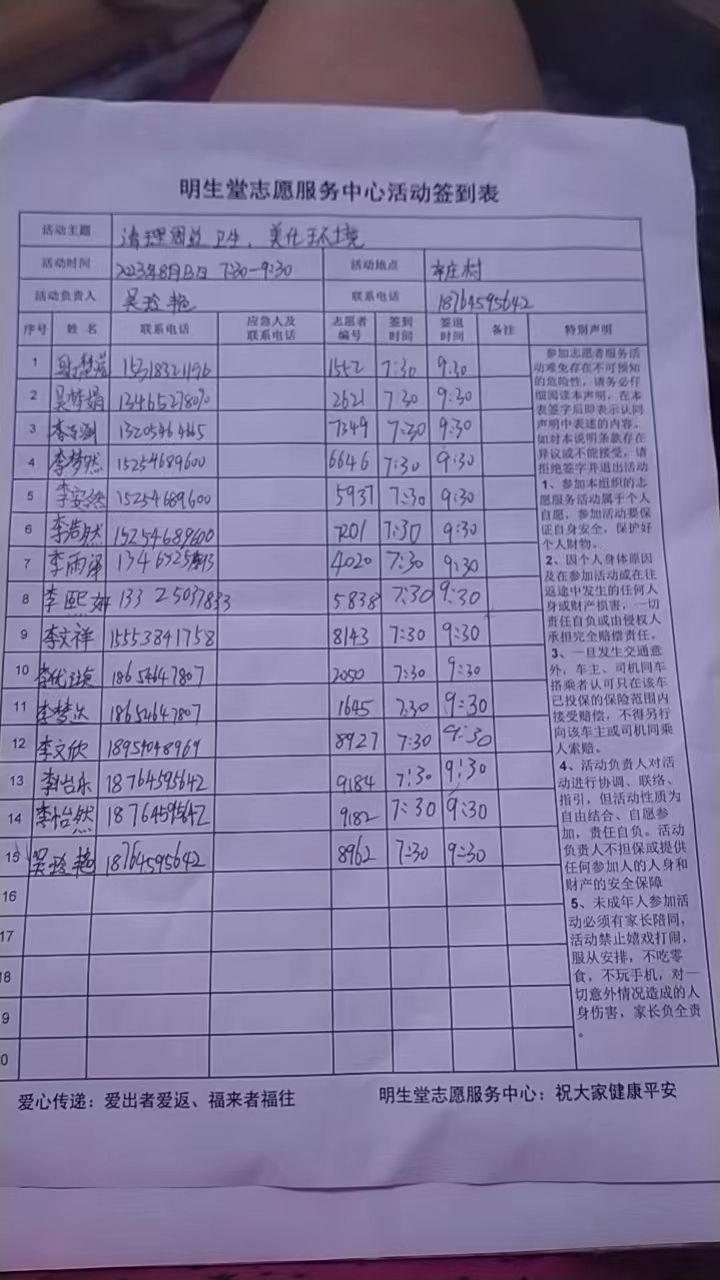 明生堂志愿服务中心活动签到表
活动主题 清理周边卫生、美化环境
活动时间 2023年8月13日 7:30-9:30 活动地点 辛庄村
活动负责人 吴玲艳 联系电话 18764595642
序号 姓名 联系电话 应急人及联系电话 志愿者编号 签到时间 签退时间 备注 特别声明
1 1552 7:30 9:30
2 吴梦娟 2621 7:30 9:30
3 7349 7:30 9:30
4 李梦然 15254689600 6646 7:30 9:30
5 李安然 15254689600 5937 7:30 9:30
6 李浩然 15254689600 7:30 9:30
7 李雨泽 4020 7:30 9:30
8 李熙妍 13325037833 5838 7:30 9:30
9 李文祥 15553841758 8143 7:30 9:30
10 18654647807 2050 7:30 9:30
11 李梦达 18654647807 1645 7:30 9:30
12 李文欣 18954048969 8927 7:30 9:30
13 李怡乐 18764595642 9184 7:30 9:30
14 李怡然 18764595642 9182 7:30 9:30
15 吴玲艳 18764595642 8962 7:30 9:30
16
17
18
9
0
参加志愿者服务活
动难免存在不可预知
的危险性，请务必仔
细阅读本声明，在本
表签字后即表示认同
声明中表述的内容。
如对本说明条款存在
异议或不能接受，请
拒绝签字并退出活动
1、参加本组织的志
愿服务活动属于个人
自愿，参加活动要保
证自身安全，保护好
个人财物。
2、因个人身体原因
及在参加活动或在往
返途中发生的任何人
身或财产损害，一切
责任自负或由侵权人
承担完全赔偿责任。
3、一旦发生交通意
外，车主、司机同车
搭乘者认可只在该车
已投保的保险范围内
接受赔偿，不得另行
向该车主或司机同乘
人索赔。
4、活动负责人对活
动进行协调、联络、
指引，但活动性质为
自由结合、自愿参
加，责任自负。活动
负责人不担保或提供
任何参加人的人身和
财产的安全保障
5、未成年人参加活
动必须有家长陪同，
活动禁止嬉戏打闹，
服从安排，不吃零
食，不玩手机，对一
切意外情况造成的人
身伤害，家长负全责
。
爱心传递：爱出者爱返、福来者福往 明生堂志愿服务中心：祝大家健康平安